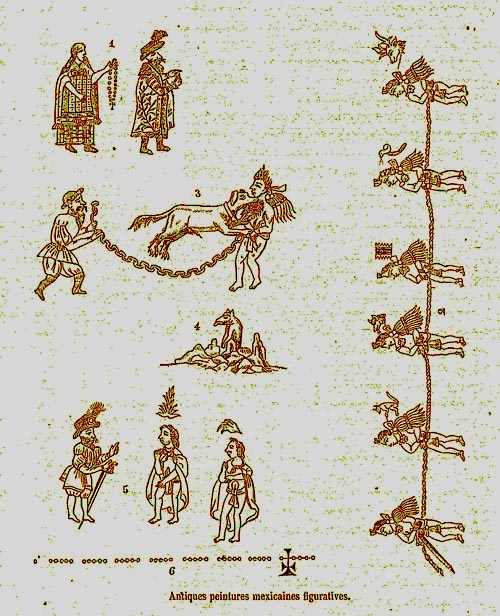 1
3
2
4
5
6
Antiques peintures mexicaines figuratives.